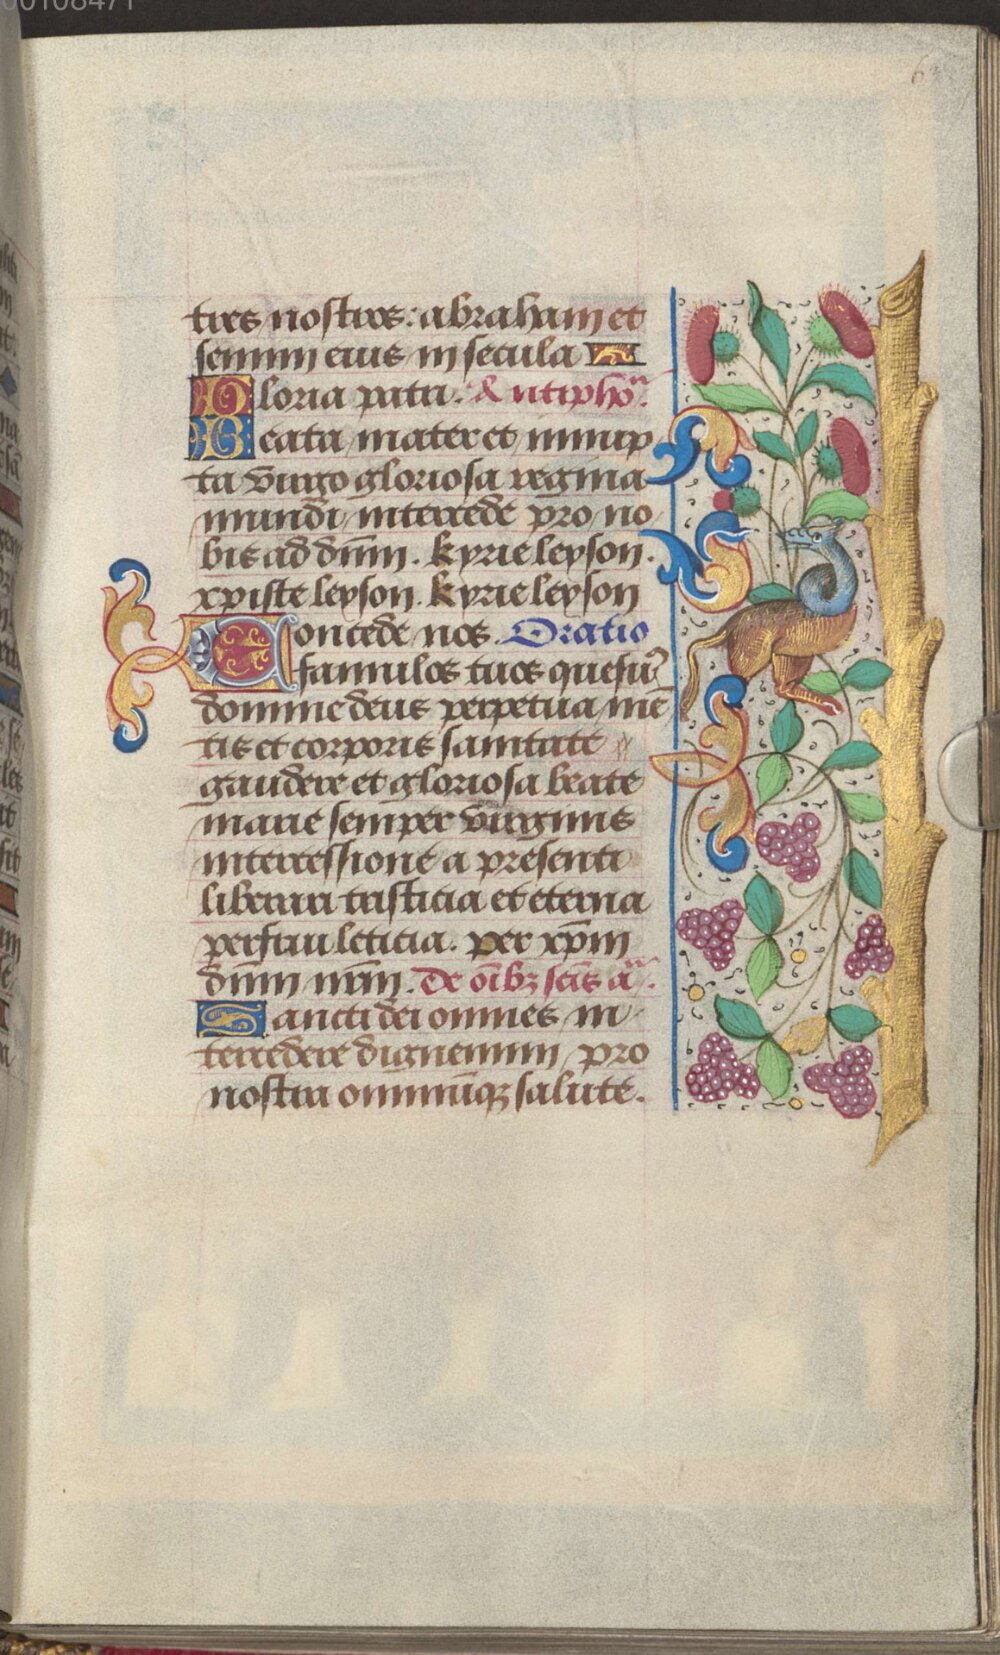 00108471
6
tres nostros: abraham et
semini eius in secula
Gloria patri. Antipho.ᵃ
Beata mater et innup
ta virgo gloriosa regina
mundi intercede pro no
bis ad dn̄m. kyrieleyson.
xpisteleyson. kyrieleyson
Concede nos Oratio
famulos tuos quesum̾
domine deus perpetua mē
tis et corporis sanitate
gaudere et gloriosa beate
marie semper virginis
intercessione a presenti
liberari tristicia et eterna
perfrui leticia. per xp̄m
dn̄m nr̄m. De oībꝫ scīs aᵃ.
Sancti dei omnes in
tercedere dignemini pro
nostra omniūqꝫ salute.